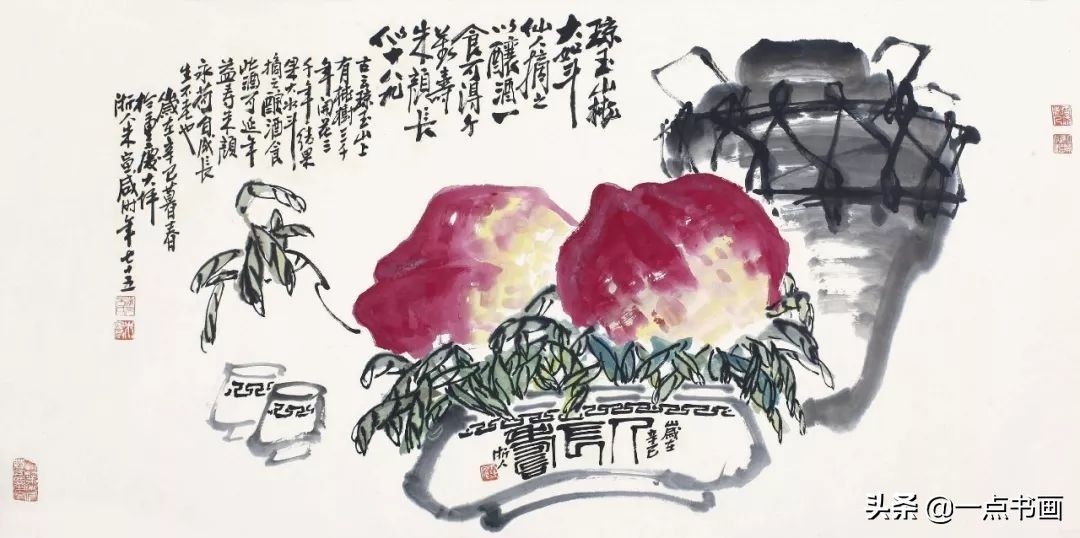 琼玉山桃
大如斗
仙人摘之
以釀酒一
食可得千
萬壽
朱顔長
似十八九
古云琼玉山上
有桃樹三千
年開花三
千年結果
果大如斗
摘之釀酒食
此酒可延年
益壽朱顔
生不老也
歲在辛巳暮春
於重慶大坪
浙人朱宣咸時年七十五
人長壽
歲在
辛巳
浙人
头条 @一点书画